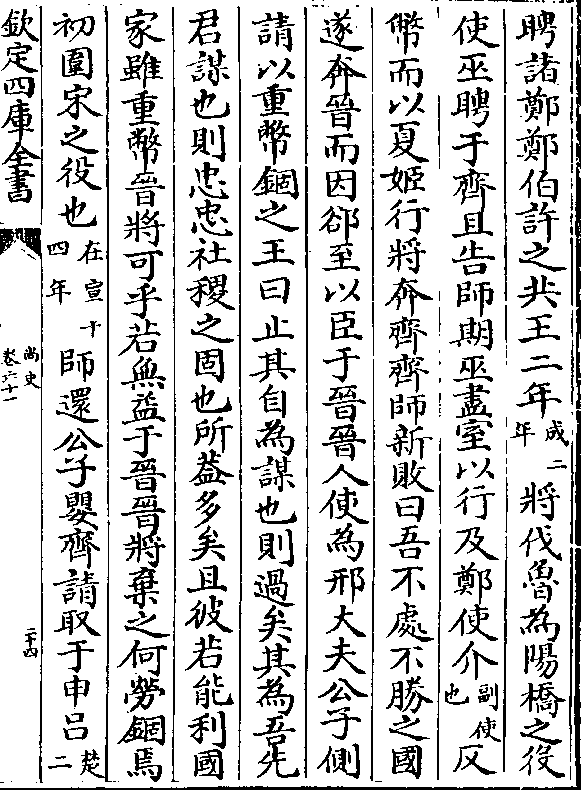 聘諸鄭鄭伯許之共王二年成二年將伐魯為陽橋之役
使巫聘于齊且告師期巫盡室以行及鄭使介副使也反
幣而以夏姬行將奔齊齊師新敗曰吾不處不勝之國
遂奔晉而因郤至以臣于晉晉人使為邢大夫公子側
請以重幣錮之王曰止其自為謀也則過矣其為吾先
君謀也則忠忠社稷之固也所葢多矣且彼若能利國
家雖重幣晉將可乎若無益于晉晉將棄之何勞錮焉
初圍宋之役也在宣十四年師還公子嬰齊請取于申呂楚二
欽定四庫全書
尚史
卷六十一
二十四